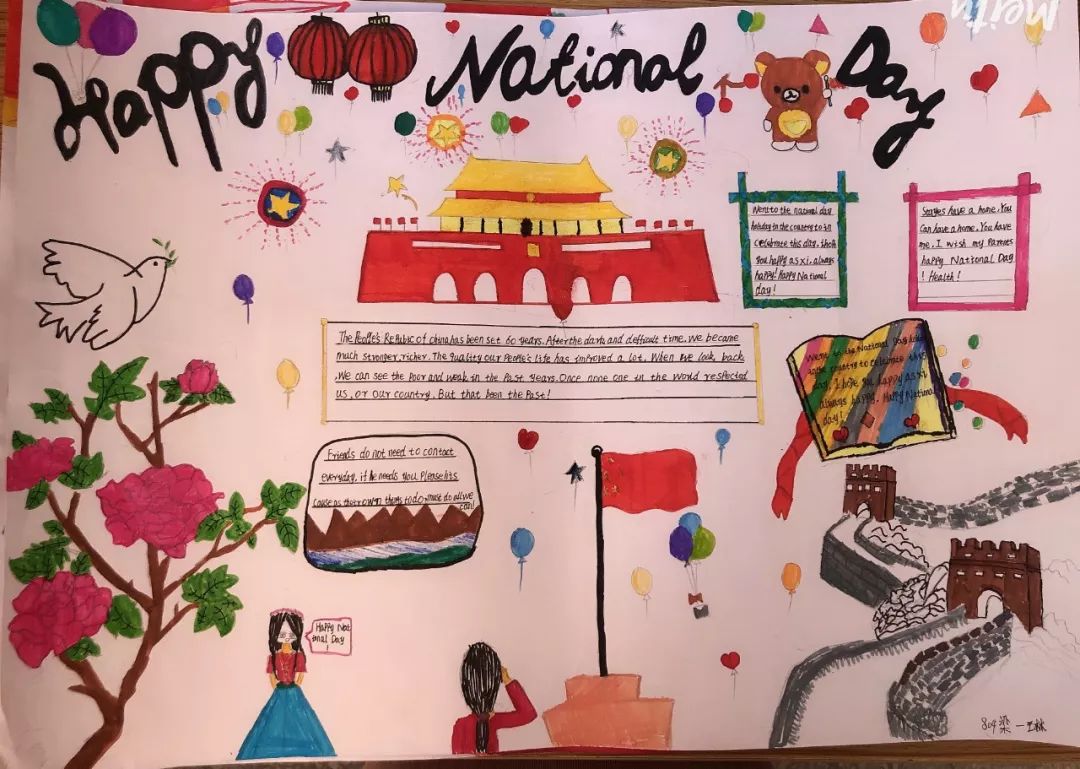 Happy National Day
Meitu
Went to the national day
holiday in the country to in
celebrate this day, I hope
you happy as xi, always
happy! Happy National
day!
Have a home, You
Can have a home, You have
me, I wish my Parents
happy National Day
! Health!
The People's Republic of china has been set 60 years. After the dark and defficult time, we became
much stronger, richer. The quality our People's life has improved a lot. When we look back
,We can see the poor and weak in the Past years. Once none one in the world respected
us, or our country. But that been the Past!
Went to the National Day holi
in the country to celebrate this
day, I hope you happy as xi
always happy. Happy National
day!
Friends do not need to contact
everyday, if he needs you Please
own things to do must do
Happy Nat
ional Day
!
804 梁一